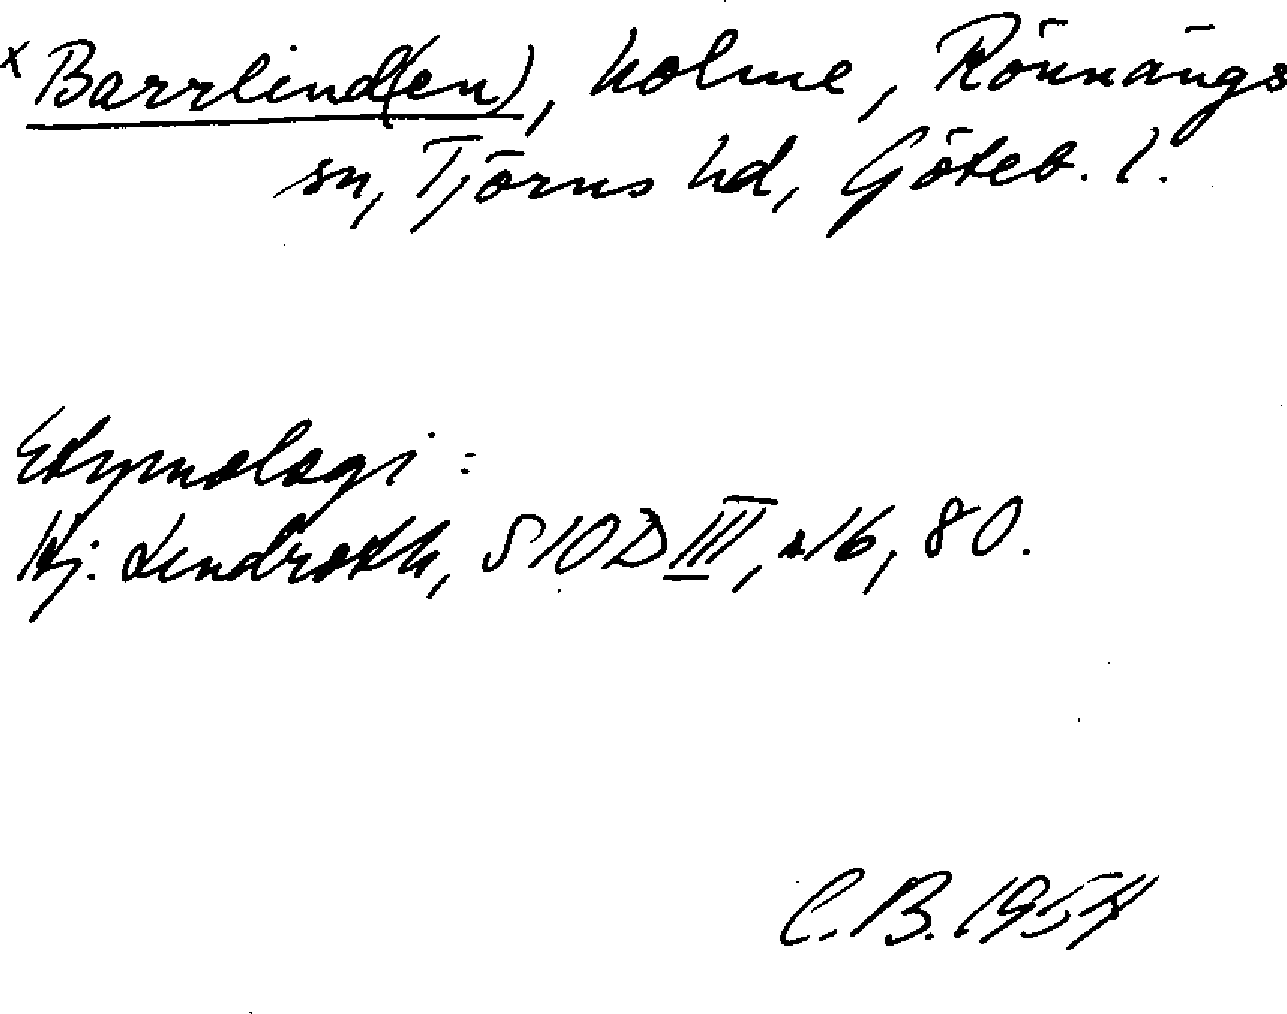 x Barrlind(en), holme, Rönnängs
sn, Tjörns hd, Göteb. l.
Etymologi:
Hj. Lindroth, SIOD III, s. 16, 80.
C. B. 1954